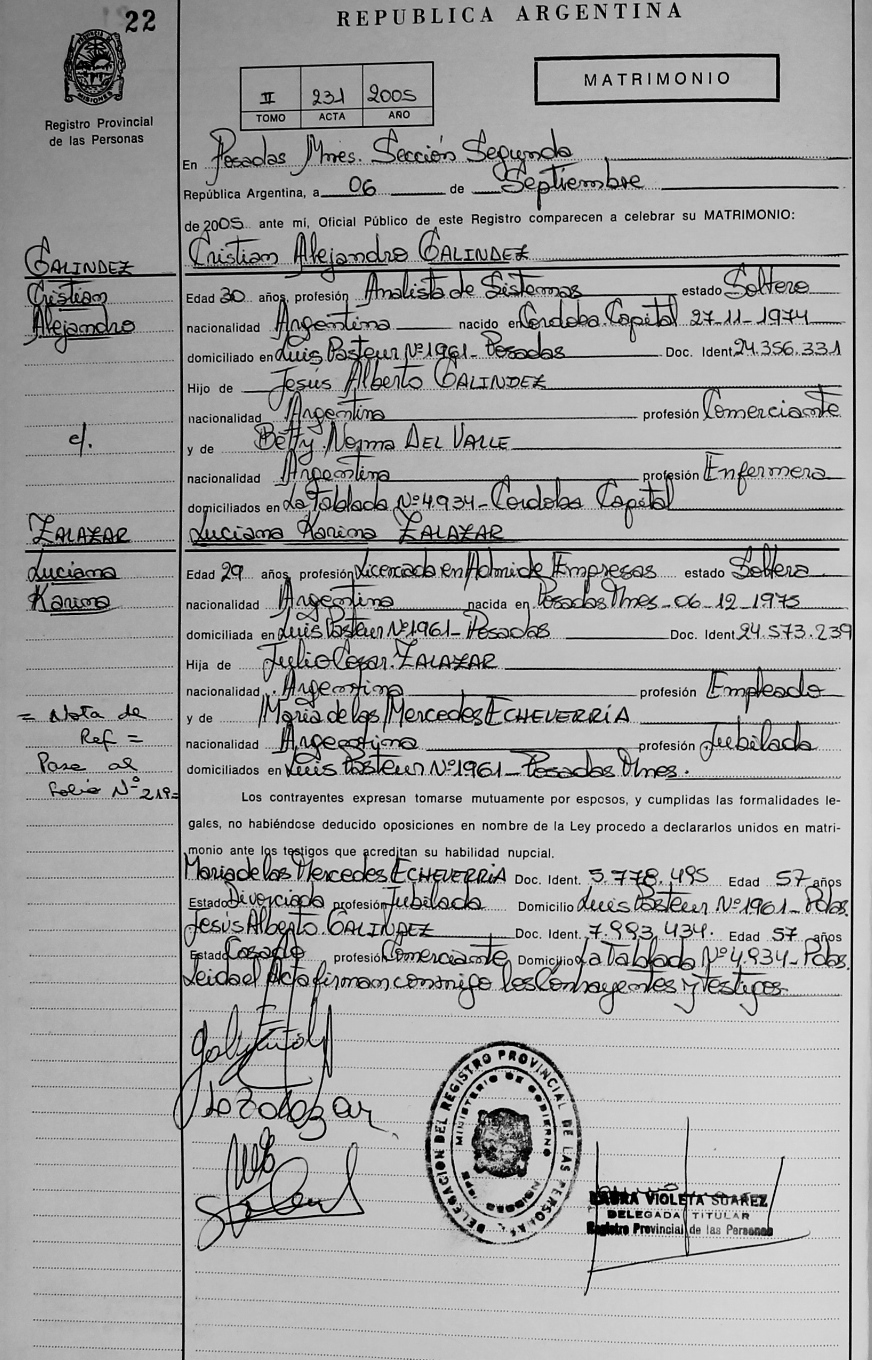 22
REPUBLICA ARGENTINA
PROVINCIA DE MISIONES
Registro Provincial
de las Personas
II 231 2005
TOMO ACTA AÑO
MATRIMONIO
En Posadas Mnes. Sección Segunda
República Argentina, a 06 de Septiembre
de 2005 ante mi, Oficial Público de este Registro comparecen a celebrar su MATRIMONIO:
GALINDEZ
Cristian
Alejandro
c/.
ZALAZAR
Luciana
Karina
= Nota de
Ref =
Pase al
folio Nº 219=
Cristian Alejandro GALINDEZ
Edad 30 años, profesión Analista de Sistemas estado Soltero
nacionalidad Argentina nacido en Cordoba Capital 27-11-1974
domiciliado en Luis Pasteur Nº1961- Posadas Doc. Ident. 24.356.331
Hijo de Jesús Alberto GALINDEZ
nacionalidad Argentina profesión Comerciante
y de Betty Norma DEL VALLE
nacionalidad Argentina profesión Enfermera
domiciliados en La Tablada Nº4.934- Cordoba Capital
Luciana Karina ZALAZAR
Edad 29 años, profesión Licenciada en Admi de Empresas estado Soltera
nacionalidad Argentina nacida en Posadas Mnes- 06-12-1975
domiciliada en Luis Pasteur Nº1961- Posadas Doc. Ident. 24.573.239
Hija de Julio Cesar ZALAZAR
nacionalidad Argentina profesión Empleado
y de Maria de las Mercedes ECHEVERRÍA
nacionalidad Argentina profesión Jubilada
domiciliados en Luis Pasteur Nº1961- Posadas Mnes.
Los contrayentes expresan tomarse mutuamente por esposos, y cumplidas las formalidades le-
gales, no habiéndose deducido oposiciones en nombre de la Ley procedo a declararlos unidos en matri-
monio ante los testigos que acreditan su habilidad nupcial.
Maria de las Mercedes ECHEVERRÍA Doc. Ident. 5.778.495 Edad 57 años
Estado Divorciada profesión Jubilada Domicilio Luis Pasteur Nº1961- Pdas.
Jesús Alberto GALINDEZ Doc. Ident. 7.993.434. Edad 57 años
Estado Casado profesión Comerciante Domicilio La Tablada Nº4.934- Pdas.
Leida el Acta firman conmigo los Contrayentes y Testigos
DELEGACION DEL REGISTRO PROVINCIAL DE LAS PERSONAS
MINISTERIO DE GOBIERNO
LAURA VIOLETA SUAREZ
DELEGADA TITULAR
Registro Provincial de las Personas